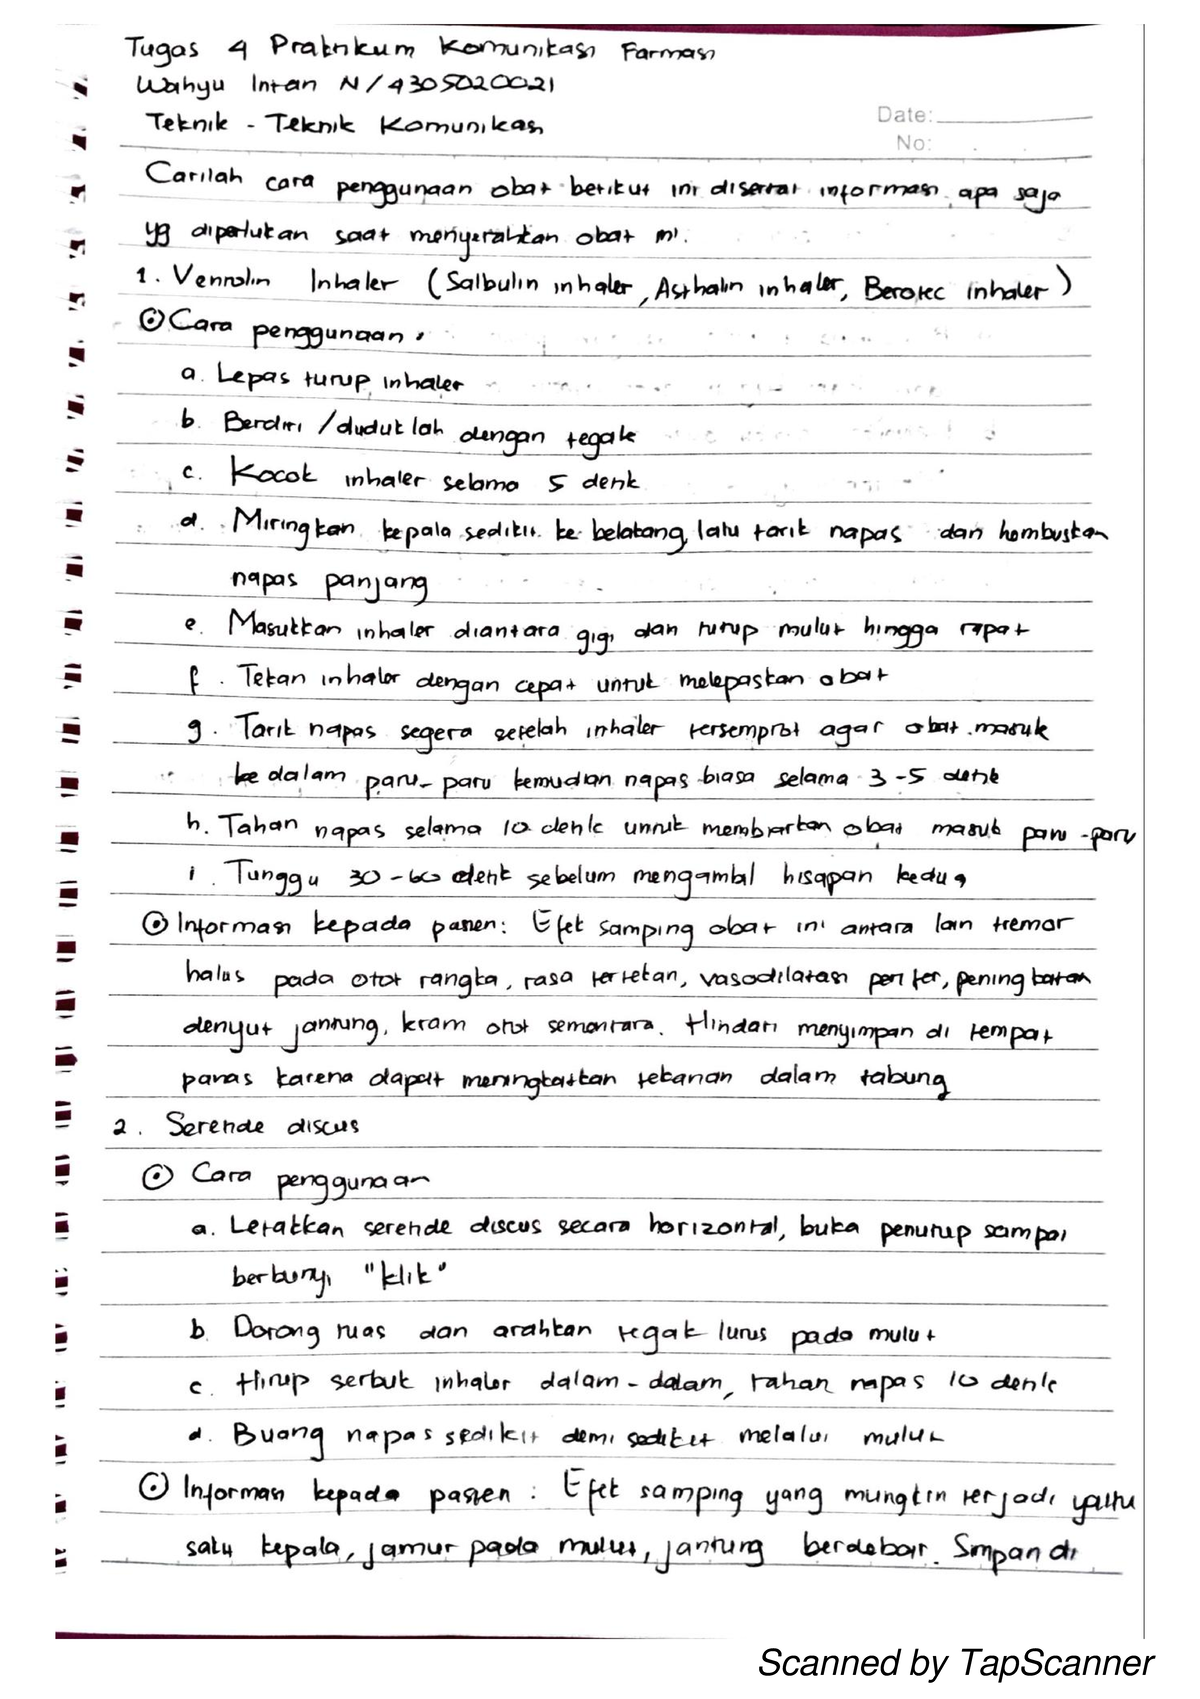 Tugas 4 Praktikum Komunikasi Farmasi
Wahyu Intan N / 4305020021
Teknik - Teknik Komunikasi
Date:
No:
Carilah cara penggunaan obat berikut ini disertai informasi apa saja
yg diperlukan saat menyerahkan obat ini.
1. Venrolin Inhaler (Salbulin inhaler, Asthalin inhaler, Berotec inhaler)
Cara penggunaan :
a. Lepas tutup inhaler
b. Berdiri / duduklah dengan tegak
c. Kocok inhaler selama 5 detik
d. Miringkan kepala sedikit ke belakang, lalu tarik napas dan hembuskan
napas panjang
e. Masukkan inhaler diantara gigi dan tutup mulut hingga rapat
f. Tekan inhaler dengan cepat untuk melepaskan obat
g. Tarik napas segera setelah inhaler tersemprot agar obat masuk
ke dalam paru-paru kemudian napas biasa selama 3-5 detik
h. Tahan napas selama 10 detik untuk membiarkan obat masuk paru-paru
i. Tunggu 30-60 detik sebelum mengambil hisapan kedua
Informasi kepada pasien: Efek samping obat ini antara lain tremor
halus pada otot rangka, rasa tertekan, vasodilatasi perifer, peningkatan
denyut jantung, kram otot sementara. Hindari menyimpan di tempat
panas karena dapat meningkatkan tekanan dalam tabung
2. Seretide discus
Cara penggunaan
a. Letakkan seretide discus secara horizontal, buka penutup sampai
berbunyi "klik"
b. Dorong tuas dan arahkan tegak lurus pada mulut
c. Hirup serbuk inhaler dalam-dalam, tahan napas 10 detik
d. Buang napas sedikit demi sedikit melalui mulut
Informasi kepada pasien : Efek samping yang mungkin terjadi yaitu
sakit kepala, jamur pada mulut, jantung berdebar. Simpan di
Scanned by TapScanner